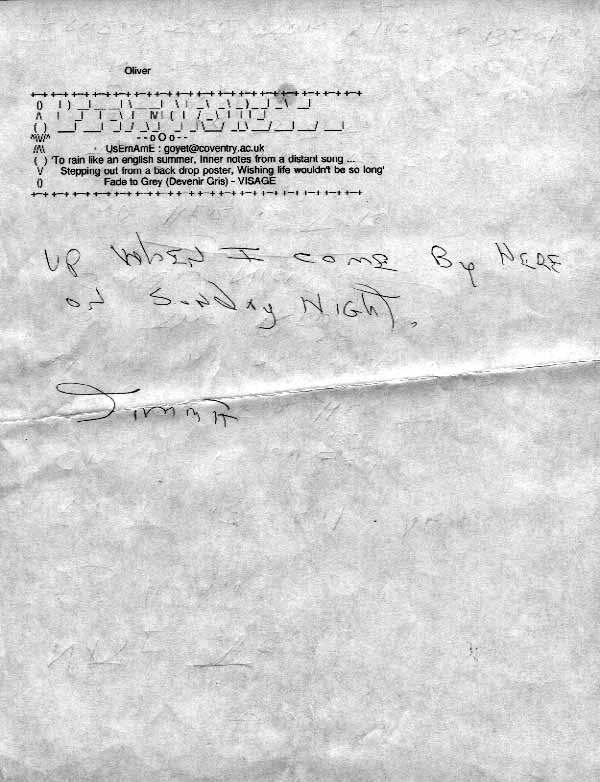 Oliver
--oOo--
UsErnAmE : goyet@coventry.ac.uk
'To rain like an english summer, Inner notes from a distant song ...
Stepping out from a back drop poster, Wishing life wouldn't be so long'
Fade to Grey (Devenir Gris) - VISAGE
UP WHEN I COME By HERE
ON SUNDAy NIGHT.